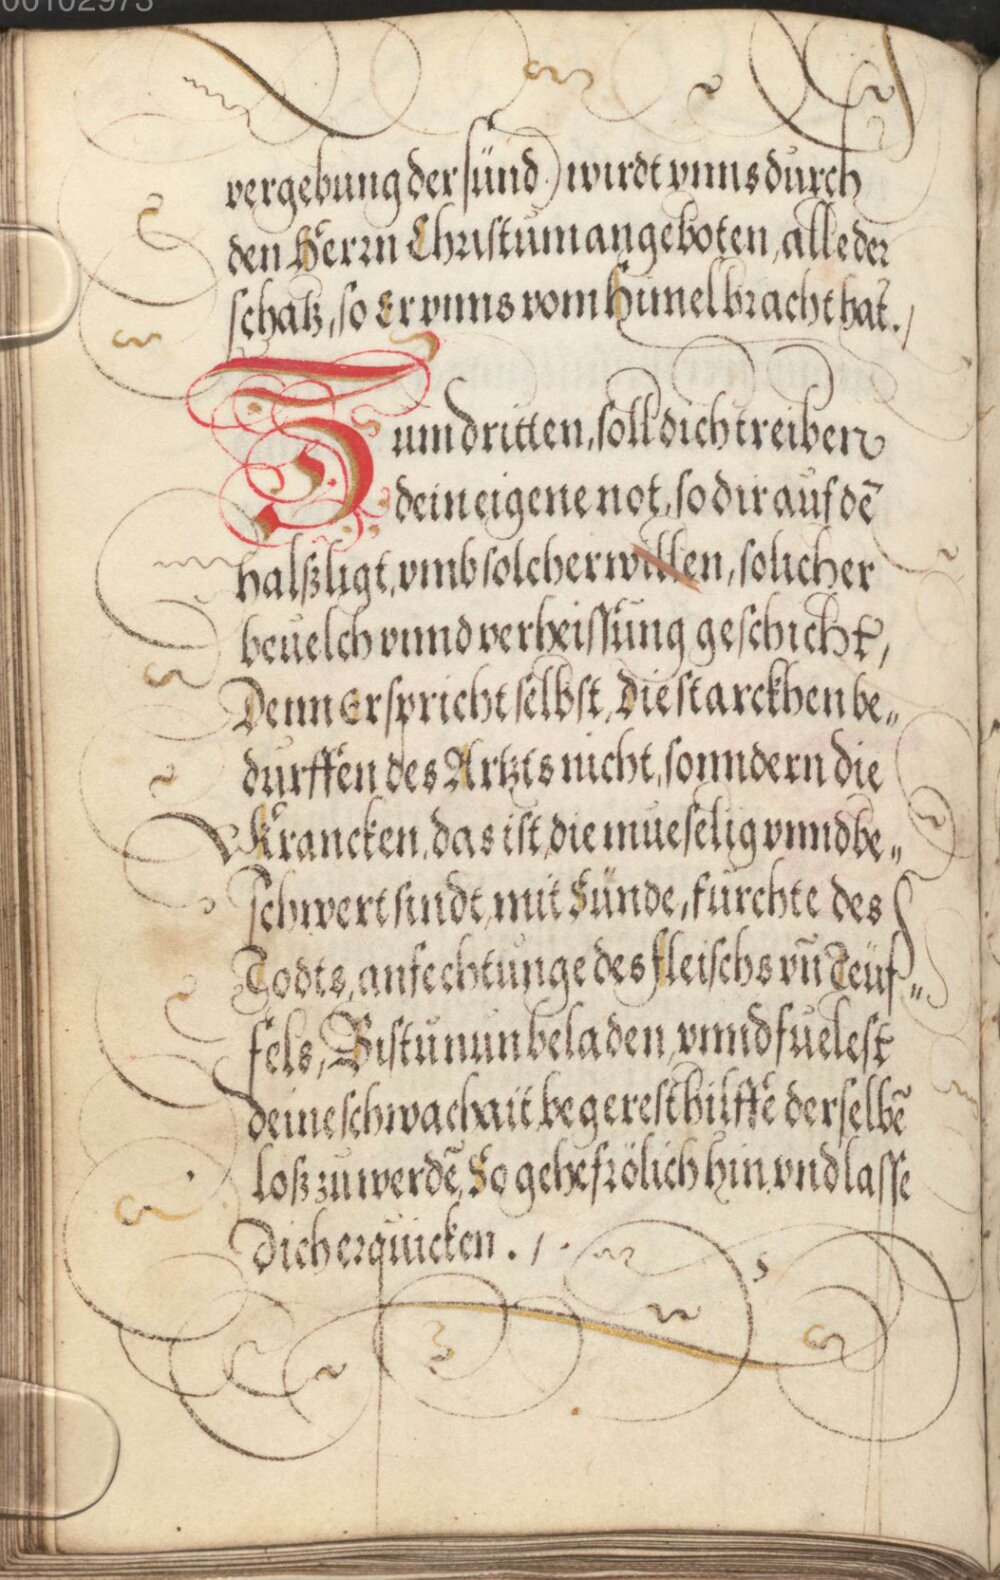 00102973
vergebung der sünd) wirdt vnns durch
den Herrn Christum angeboten, alle der
schatz, so Er vnns vom Himel bracht hat./
Zum dritten, soll dich treiben
dein eigene not, so dir auf dē
halß ligt, vmb solcher willen, solicher
beuelch vnnd verheissung geschicht,
Denn Er spricht selbst, Die starckhen be„
durffen des Artzts nicht, sonndern die
Krancken, das ist, die mueselig vnnd be„
schwert sindt, mit Sünde, furchte des
Todts, anfechtunge des fleischs vn̄ Teüf„
fels, Bistu nun beladen, vnnd fuelest
deine schwachait, begerest hilffe derselbē
loß zu werdē, So gehe frölich hin, vnd lasse
Dich erquicken ./.